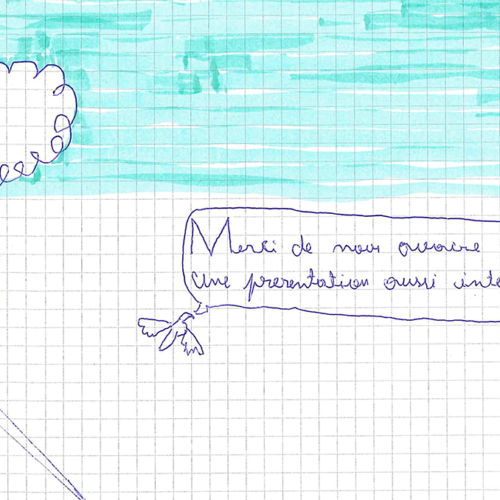 Merci de nous
une presentation aussi inte